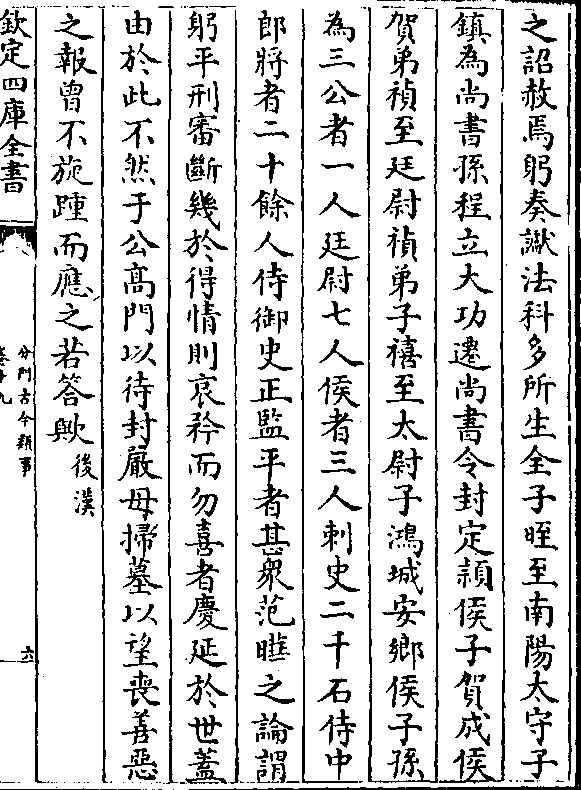 之詔赦焉躬奏讞法科多所生全子晊至南陽太守子
鎮為尚書孫程立大功遷尚書令封定潁侯子賀成侯
賀弟禎至廷尉禎弟子禧至太尉子鴻城安鄉侯子孫
為三公者一人廷尉七人侯者三人刺史二千石侍中
郎將者二十餘人侍御史正監平者甚衆范曄之論謂
躬平刑審斷幾於得情則哀矜而勿喜者慶延於世蓋
由於此不然于公髙門以待封嚴母掃墓以望喪善惡
之報曾不旋踵而應之若答歟後漢
欽定四庫全書
分門古今類事
六